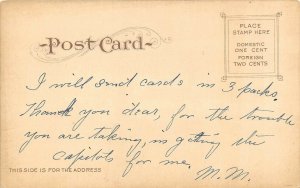 Post Card
PLACE
STAMP HERE
DOMESTIC
ONE CENT
FOREIGN
TWO CENTS
I will send cards in 3 packs.
Thank you dear, for the trouble
you are taking, in getting the
Capitols for me.
M.M.
THIS SIDE IS FOR THE ADDRESS